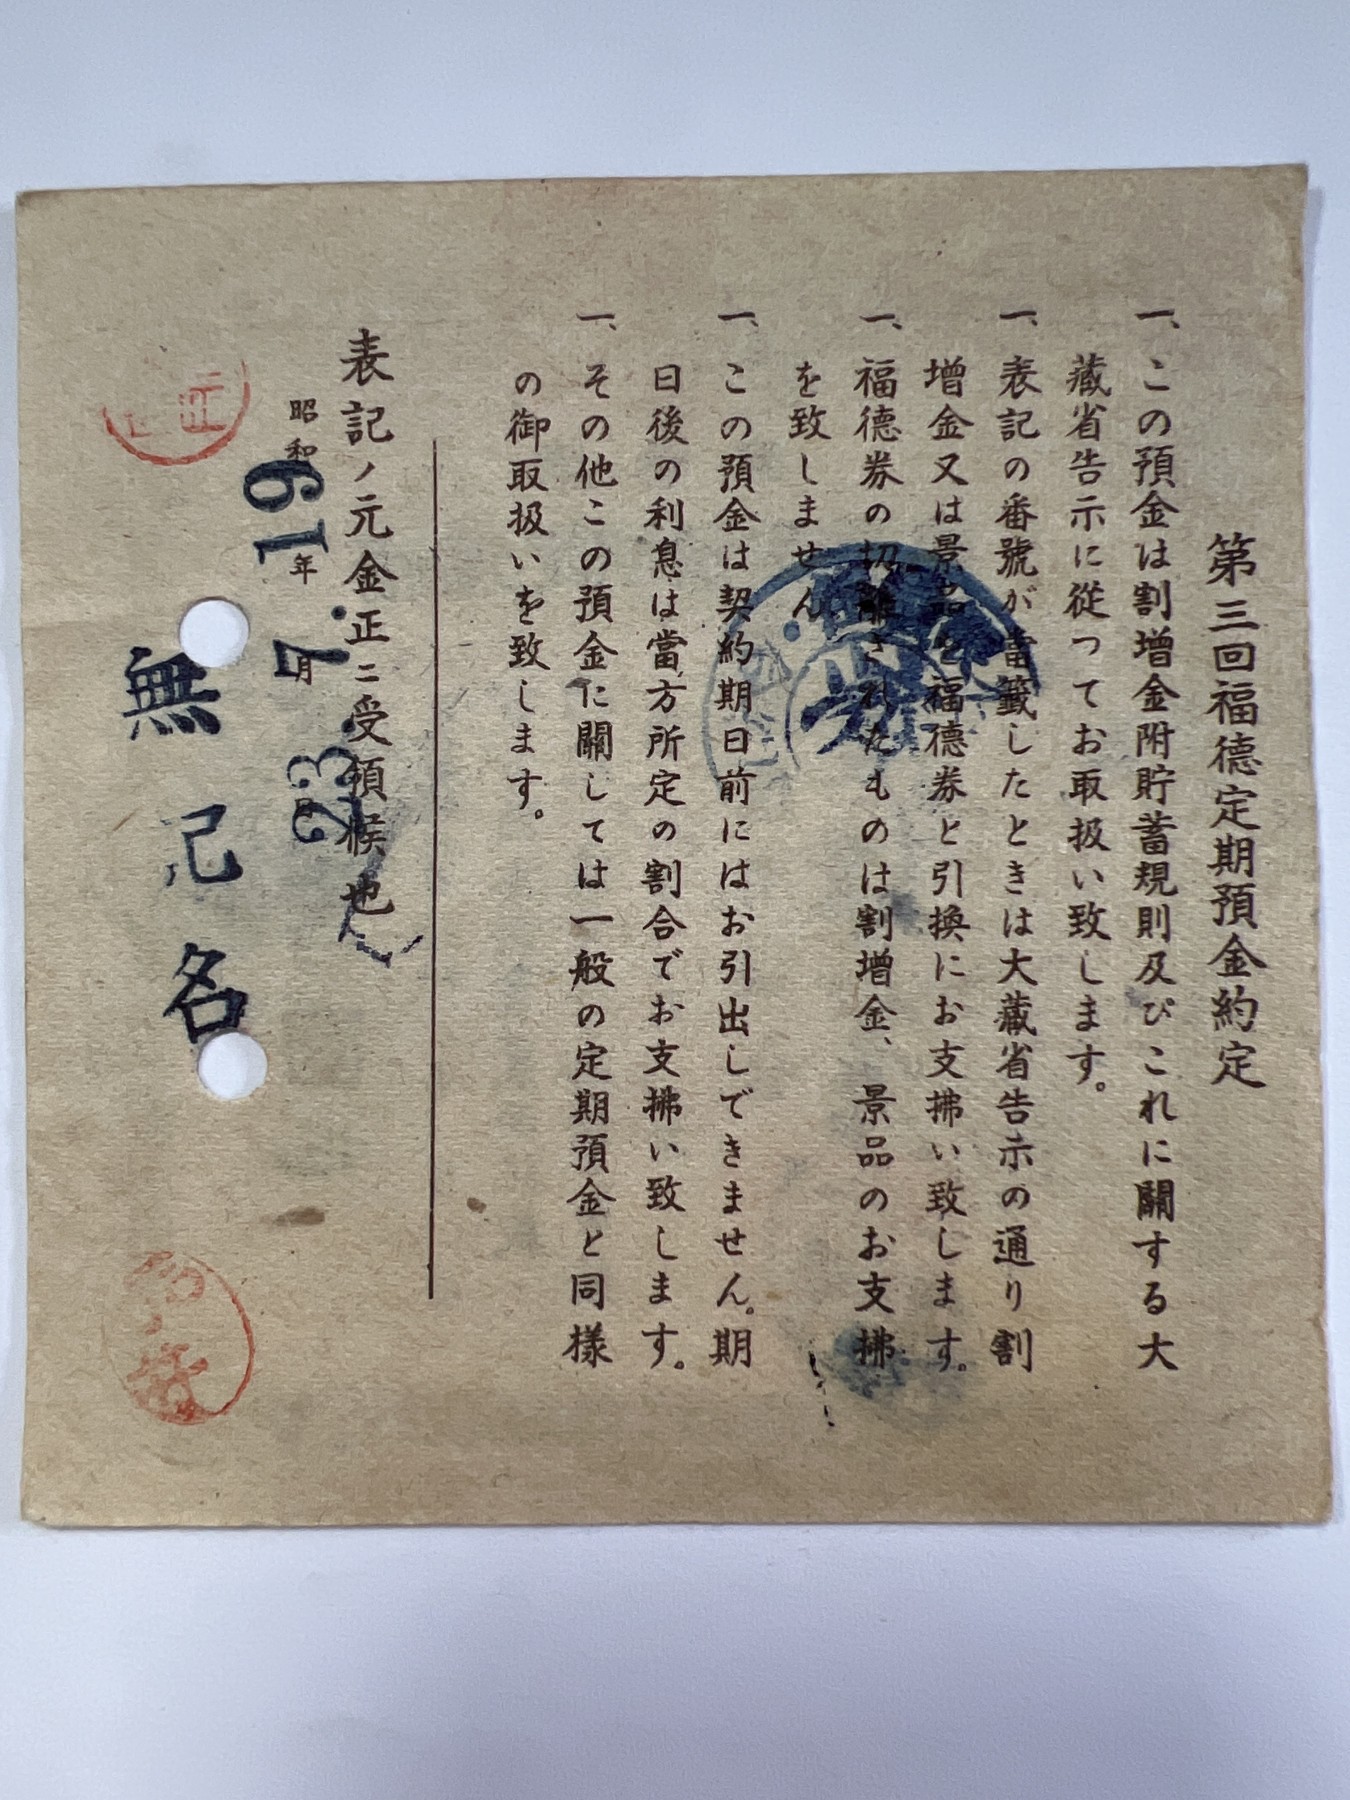 第三回福德定期預金約定
一、この預金は割增金附貯蓄規則及びこれに關する大
藏省告示に從つてお取扱い致します。
一、表記の番號が當籤したときは大藏省告示の通り割
增金又は景品を福德券と引換にお支拂い致します。
一、福德券の切離されたものは割增金、景品のお支拂
を致しません
一、この預金は契約期日前にはお引出しできません。期
日後の利息は當方所定の割合でお支拂い致します。
一、その他この預金に關しては一般の定期預金と同樣
の御取扱いを致します。
表記ノ元金正ニ受領候也
昭和19年7月23
無記名